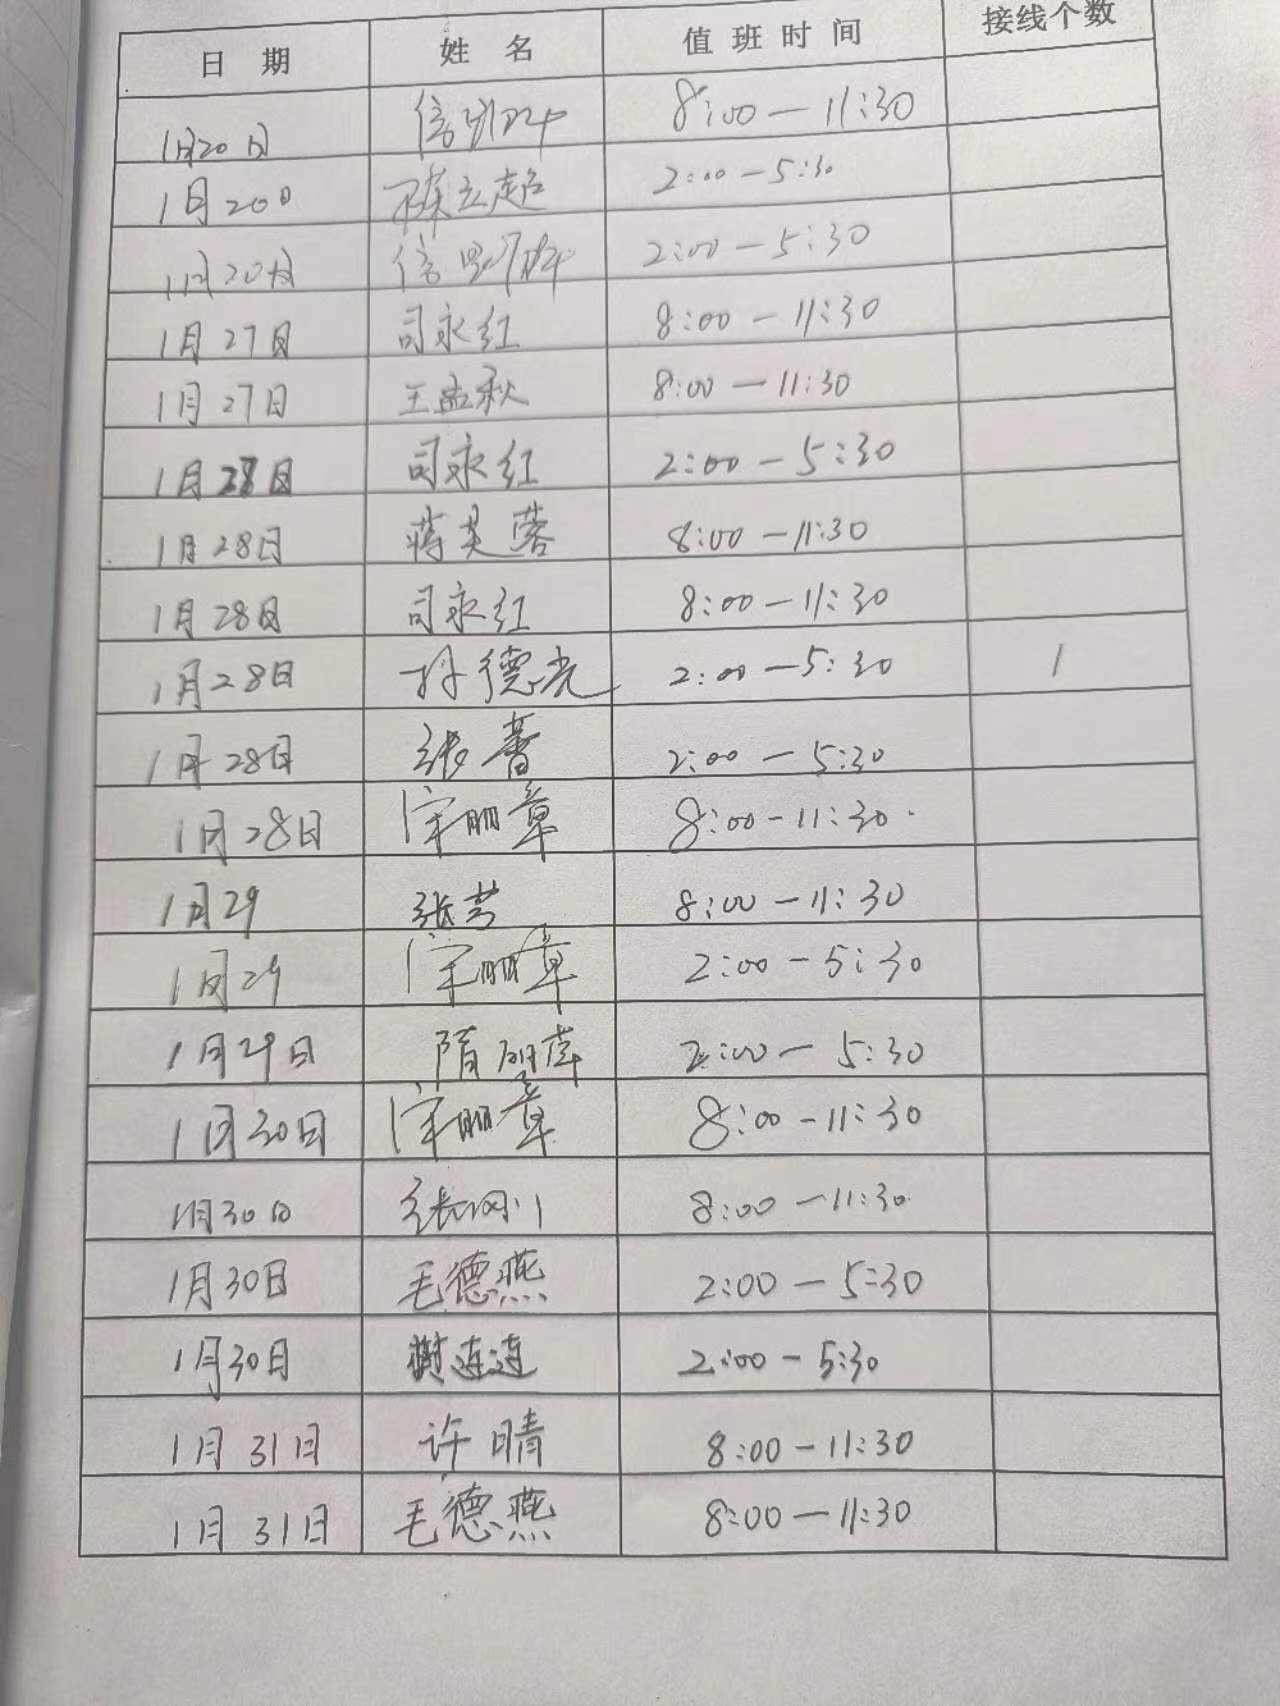 日 期 姓 名 值 班 时 间 接线个数
1月20日 信 8:00 — 11:30
1月20日 立超 2:00 — 5:30
1月20日 信 2:00 — 5:30
1月27日 司永红 8:00 — 11:30
1月27日 王孟秋 8:00 — 11:30
1月28日 司永红 2:00 — 5:30
1月28日 蒋芙蓉 8:00 — 11:30
1月28日 司永红 8:00 — 11:30
1月28日 孙德光 2:00 — 5:30 1
1月28日 张蕾 2:00 — 5:30
1月28日 宋丽章 8:00 — 11:30
1月29 张芸 8:00 — 11:30
1月29 宋丽章 2:00 — 5:30
1月29日 隋 2:00 — 5:30
1月30日 宋丽章 8:00 — 11:30
1月30日 张 8:00 — 11:30
1月30日 毛德燕 2:00 — 5:30
1月30日 连连 2:00 — 5:30
1月31日 许晴 8:00 — 11:30
1月31日 毛德燕 8:00 — 11:30